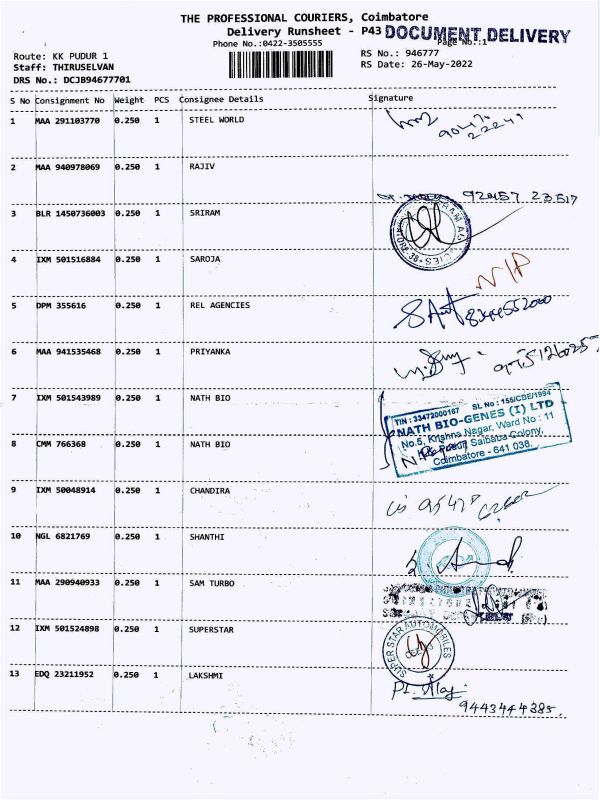 THE PROFESSIONAL COURIERS, Coimbatore
Delivery Runsheet - P43 DOCUMENT DELIVERY
Phone No.:0422-3505555 Page No.:1
Route: KK PUDUR 1 RS No.: 946777
Staff: THIRUSELVAN RS Date: 26-May-2022
DRS No.: DCJB94677701
S No Consignment No Weight PCS Consignee Details Signature
1 MAA 291103770 0.250 1 STEEL WORLD
2 MAA 940978069 0.250 1 RAJIV
92457 23517
3 BLR 1450736003 0.250 1 SRIRAM
4 IXM 501516884 0.250 1 SAROJA
N/P
5 DPM 355616 0.250 1 REL AGENCIES
6 MAA 941535468 0.250 1 PRIYANKA
7 IXM 501543989 0.250 1 NATH BIO
TIN : 33472000167 SL No : 155/CBE/1994
NATH BIO-GENES (I) LTD
No.5, Krishna Nagar, Ward No : 11
Saibaba Colony,
Coimbatore - 641 038.
8 CMM 766368 0.250 1 NATH BIO
9 IXM 50048914 0.250 1 CHANDIRA
10 NGL 6821769 0.250 1 SHANTHI
11 MAA 290940933 0.250 1 SAM TURBO
12 IXM 501524898 0.250 1 SUPERSTAR
SUPER STAR AUTOMOBILES
13 EDQ 23211952 0.250 1 LAKSHMI
9443444385.